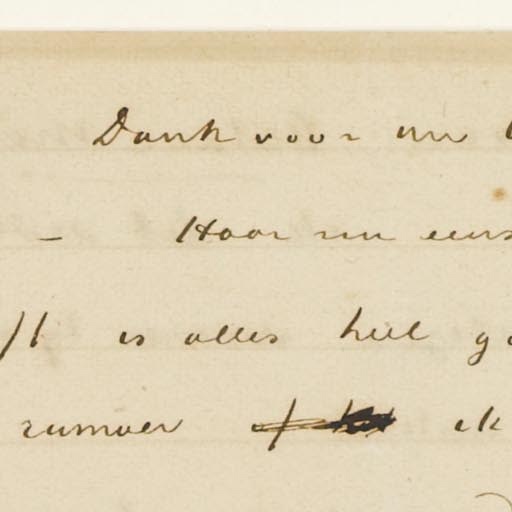 Dank voor uw
- Hoor nu eens
is alles heel
rumoer of ik